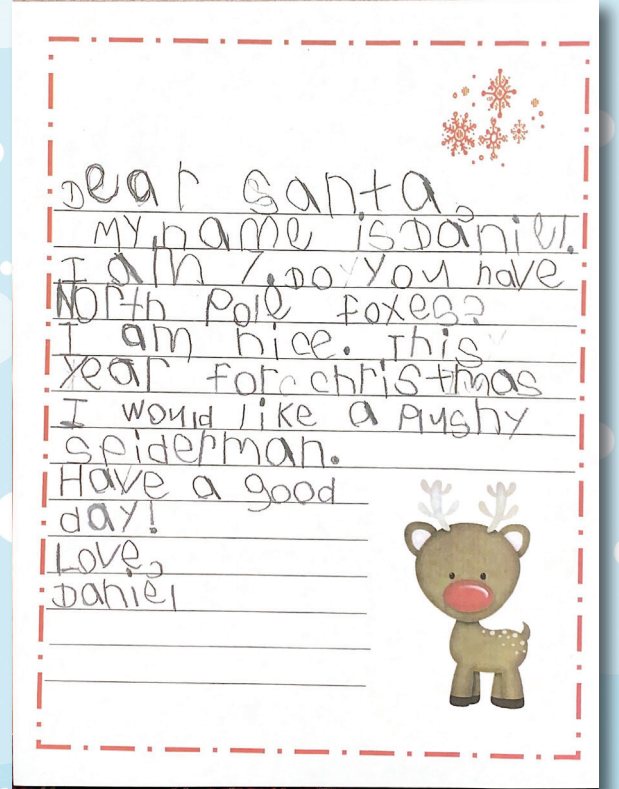 Dear Santa,
My name isDaniel.
I am 7. Do you have
North Pole foxes?
I am nice. This
year for christmas
I would like a Plushy
spiderman.
Have a good
day!
Love,
Daniel